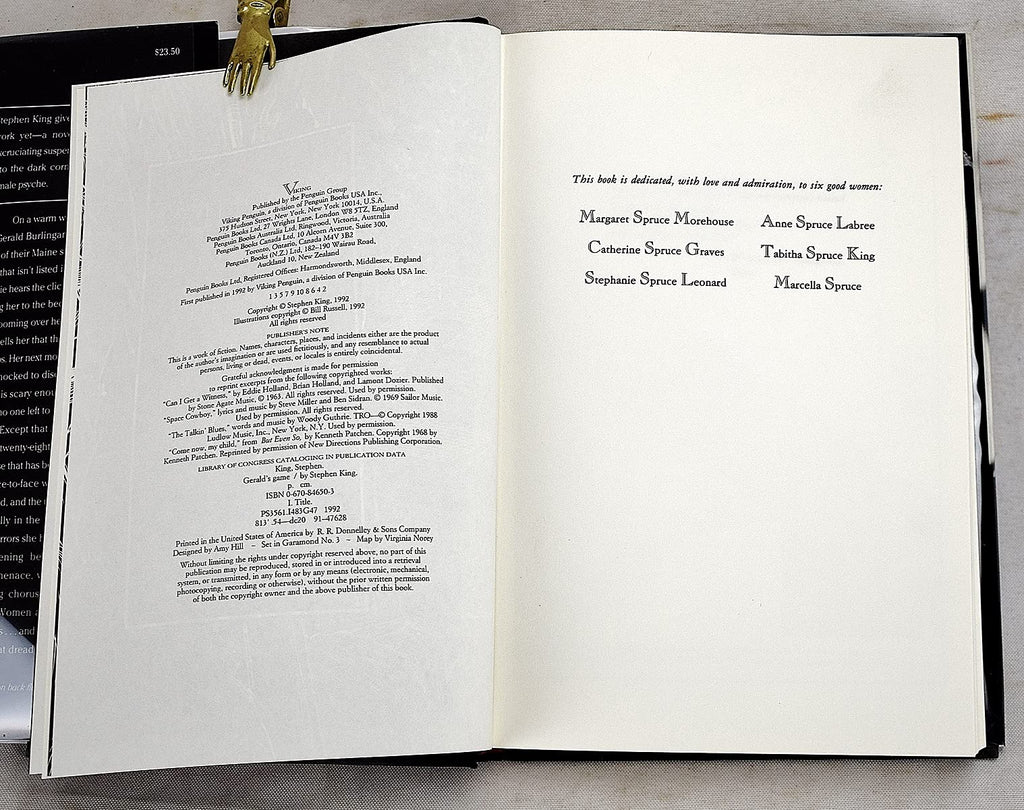 $23.50
tephen King giv
ork yet—a nov
xcruciating suspe
to the dark corn
male psyche.
On a warm w
Gerald Burlingar
of their Maine s
that isn't listed i
ie hears the clic
g her to the bec
ooming over he
ells her that th
s. Her next mo
nocked to disc
is scary enou
no one left to
Except that
twenty-eight
se that has b
ce-to-face w
d, and the
lly in the
rrors she h
ening be
menace, w
g chorus
Women a
s . . . and
at dread
on back f
VIKING
Published by the Penguin Group
Viking Penguin, a division of Penguin Books USA Inc.,
375 Hudson Street, New York, New York 10014, U.S.A.
Penguin Books Ltd, 27 Wrights Lane, London W8 5TZ, England
Penguin Books Australia Ltd, Ringwood, Victoria, Australia
Penguin Books Canada Ltd, 10 Alcorn Avenue, Suite 300,
Toronto, Ontario, Canada M4V 3B2
Penguin Books (N.Z.) Ltd, 182–190 Wairau Road,
Auckland 10, New Zealand
Penguin Books Ltd, Registered Offices: Harmondsworth, Middlesex, England
First published in 1992 by Viking Penguin, a division of Penguin Books USA Inc.
1 3 5 7 9 10 8 6 4 2
Copyright © Stephen King, 1992
Illustrations copyright © Bill Russell, 1992
All rights reserved
PUBLISHER'S NOTE
This is a work of fiction. Names, characters, places, and incidents either are the product
of the author's imagination or are used fictitiously, and any resemblance to actual
persons, living or dead, events, or locales is entirely coincidental.
Grateful acknowledgment is made for permission
to reprint excerpts from the following copyrighted works:
"Can I Get a Witness," by Eddie Holland, Brian Holland, and Lamont Dozier. Published
by Stone Agate Music, © 1963. All rights reserved. Used by permission.
"Space Cowboy," lyrics and music by Steve Miller and Ben Sidran. © 1969 Sailor Music.
Used by permission. All rights reserved.
"The Talkin' Blues," words and music by Woody Guthrie. TRO—© Copyright 1988
Ludlow Music, Inc., New York, N.Y. Used by permission.
"Come now, my child," from But Even So, by Kenneth Patchen. Copyright 1968 by
Kenneth Patchen. Reprinted by permission of New Directions Publishing Corporation.
LIBRARY OF CONGRESS CATALOGING IN PUBLICATION DATA
King, Stephen.
Gerald's game / by Stephen King.
p. cm.
ISBN 0-670-84650-3
I. Title.
PS3561.I483G47 1992
813'.54—dc20 91–47628
Printed in the United States of America by R. R. Donnelley & Sons Company
Designed by Amy Hill ~ Set in Garamond No. 3 ~ Map by Virginia Norey
Without limiting the rights under copyright reserved above, no part of this
publication may be reproduced, stored in or introduced into a retrieval
system, or transmitted, in any form or by any means (electronic, mechanical,
photocopying, recording or otherwise), without the prior written permission
of both the copyright owner and the above publisher of this book.
This book is dedicated, with love and admiration, to six good women:
Margaret Spruce Morehouse Anne Spruce Labree
Catherine Spruce Graves Tabitha Spruce King
Stephanie Spruce Leonard Marcella Spruce